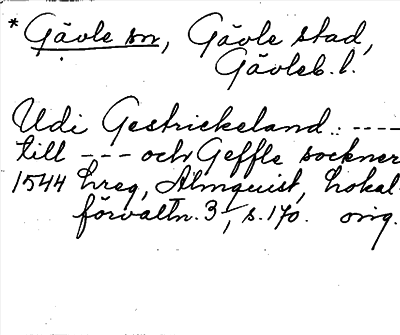 * Gävle sn, Gävle stad,
Gävleb. l.
Udi Gestrickeland..: ----
till --- och Geffle sockner
1544 hreg, Almquist, Lokal-
förvaltn. 3, s. 170. orig.